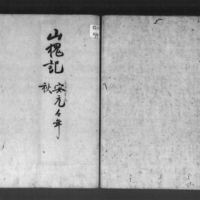 山槐記
安元々年
秋